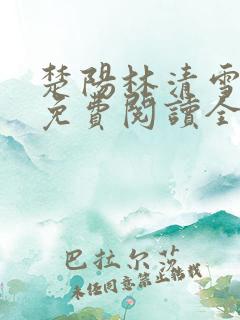 楚陽林清雪
免費閱讀全
巴拉尔莎
未经同意禁止转载